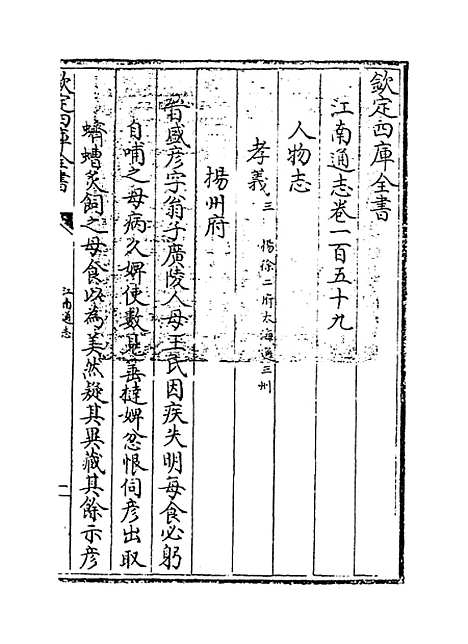 欽定四庫全書
江南通志卷一百五十九
人物志
孝義三 揚徐二府太海通三州
揚州府
晉盛彦字翁子廣陵人母王氏因疾失明每食必躬
自哺之母病久婢使數見捶撻婢忿恨伺彦出取
蠐螬炙飼之母食以為美然疑其異藏其餘示彦
欽定四庫全書
江南通志